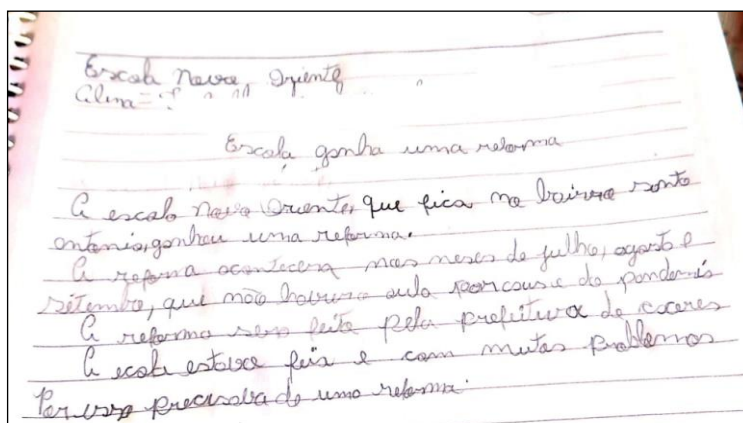 Escola Nova Oriente
Aluna =
Escola ganha uma reforma
A escola Nova Oriente, que fica no bairro santo
antonio, ganhou uma reforma.
A reforma acontecera nos meses de julho, agosto e
setembro, que não haveria aula por causa da pandemia
A reforma sera feita pela prefeitura de caceres
A ecola estava feia e com mutos problemas
Por isso precisava de uma reforma.